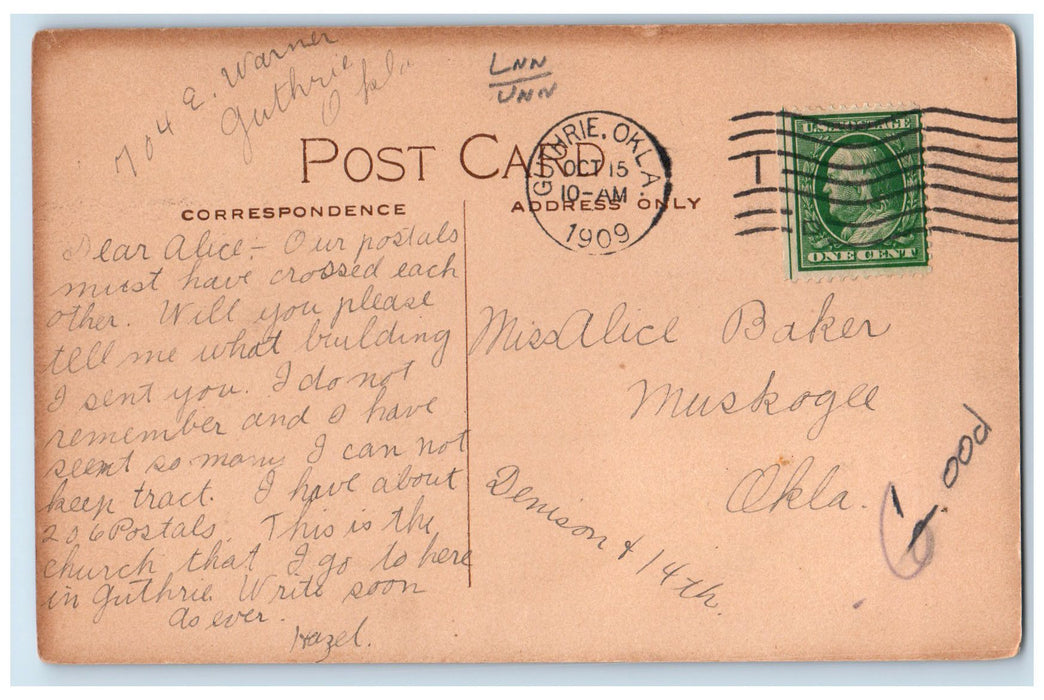 704 E. Warner
Guthrie
Okla
LNN
UNN
POST CARD
GUTHRIE, OKLA.
OCT 15
10-AM
1909
U.S. POSTAGE
ONE CENT
CORRESPONDENCE
ADDRESS ONLY
Dear Alice - Our postals
must have crossed each
other. Will you please
tell me what building
I sent you. I do not
remember and I have
seent so many I can not
keep tract. I have about
206 Postals. This is the
church that I go to here
in Guthrie. Write soon
As ever.
Hazel.
Miss Alice Baker
Muskogee
Okla.
Denison & 14th.